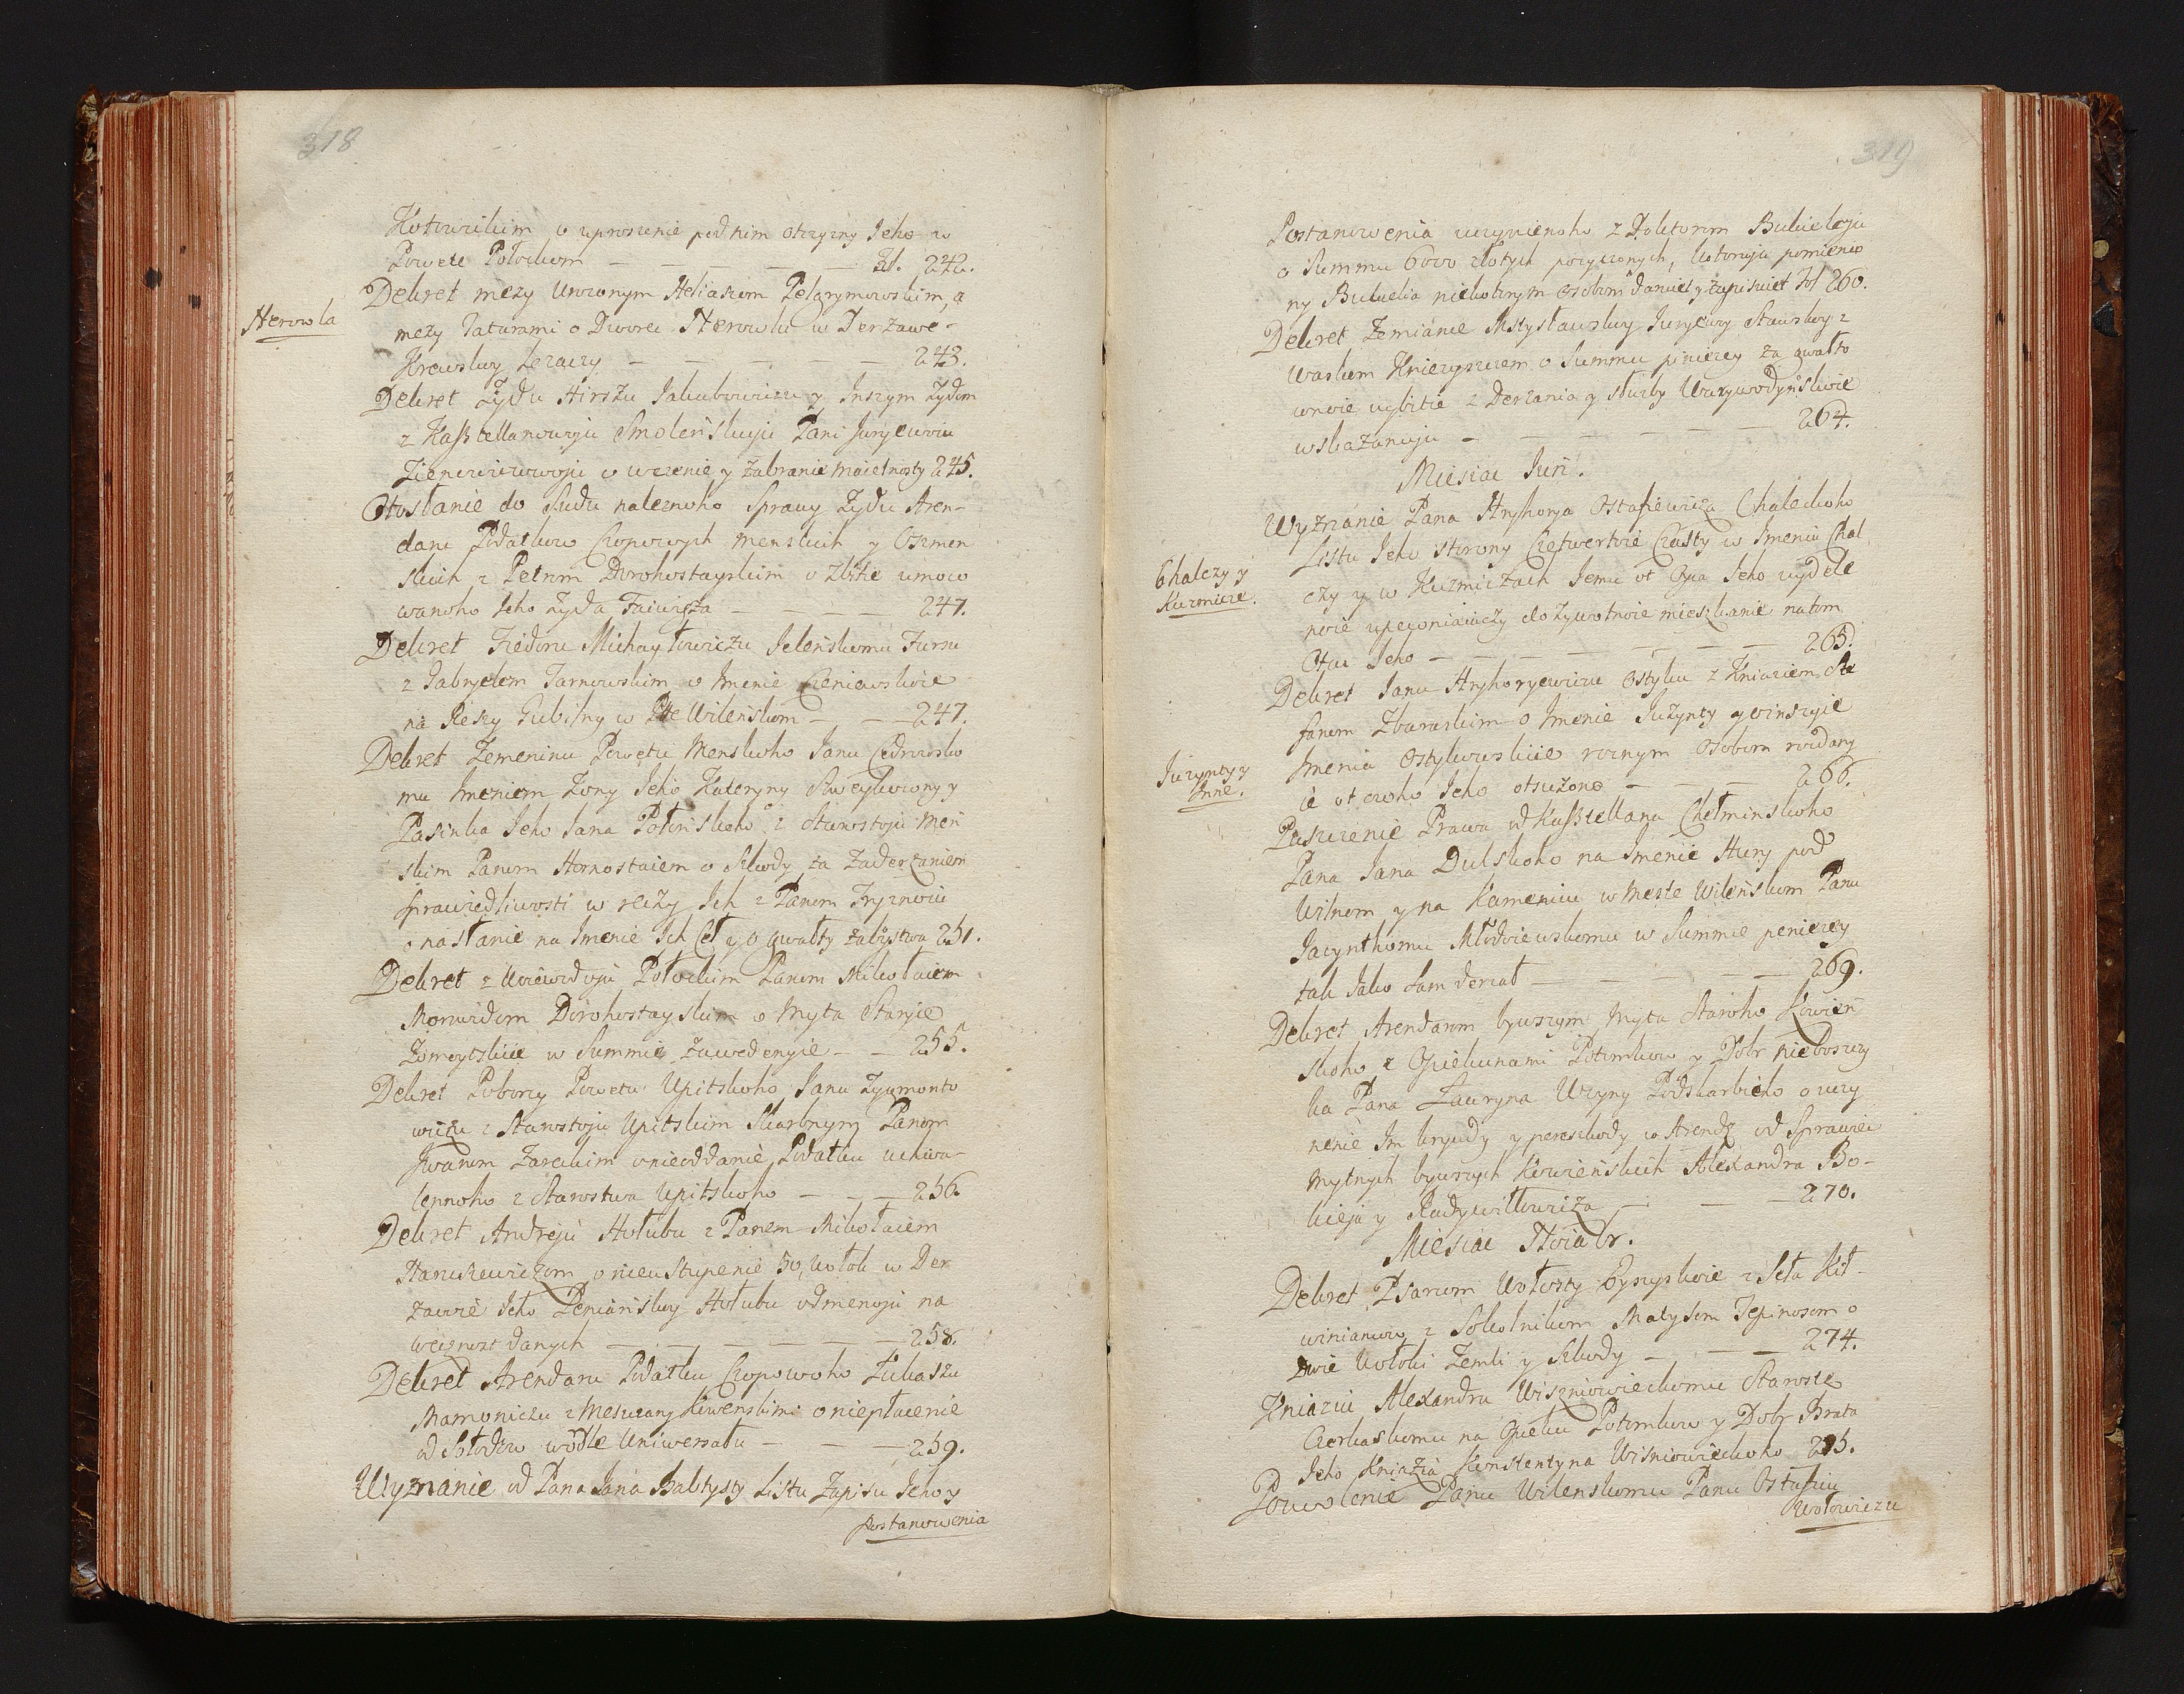 318
Kotwiczkim o uproszenie pod nim otczyzny Jeho w
Powete Połockom — — — — — — Fol. 242.
Dekret mezy Urozonym Heliaszom Pelgrymowskim, a
Nerowla
mezy Tatarami o Dworec Nerowlu w Derżawe-
Krewskoy leżaczy — — — — — — 243.
Dekret Żydu Hirszu Jakubowiczu y Inszym Żydom
z Kasztellanowoju Smolenskoju Pani Juryewoiu
Zienowiewiczowoju o wezenie y zabranie maietnosty 245.
Otosłanie do Sudu należnoho Sprawy Żydu Aren-
daru Podatkow Czopowych Menskich y Oszmen
skich z Petrom Dorohostayskim o zbitie umoco
wanoho Jeho Żyda Faiwisza — — — 247.
Dekret Fiedoru Michayłowiczu Jelenskomu Fursu
z Gabryelem Tarnowskim o Imenie Czeniewskoie
na Reszy Gubilny w Pte Wilenskom — — 247.
Dekret Zemeninu Powetu Menskoho Janu Cedrowsko
mu Imeniem Żony Jeho Kateryny Sweykowony y
Pasinka Jeho Jana Połonskoho z Starostoju Men
skim Panom Hornostaiem o Szkody za zaderżaniem
sprawiedliwosti w reczy Ich z Panom Tryznoiu
o nasłanie na Imenie Ich Cel y o gwałty zabystwa 251.
Dekret z Woiewodoju Połockim Panom Mikołaiem
Monwidom Dorohostayskim o Myta Staryie
Żomoytskiie w Summie zawedenyie — — 255.
Dekret Poborcy Powetu Upitskoho Janu Zygmonto
wiczu z Starostoju Upitskim Skarbnym Panom
Iwanom Zareckim o nieoddanie Podatku uchwa-
lennoho z Starostwa Upitskoho — — — 256.
Dekret Andreju Hołubu z Panem Mikołaiem
Naruszewiczom o nieustupenie 50, wołok w Der
zawie Jeho Penianskoy Hołubu odmenoju na
wecznost danych — — — — — — 258.
Dekret Arendaru Podatku Czopowoho Łukaszu
Mamoniczu z Mesczany Kiwenskimi o niepłacenie
od Sołodow wodle Uniwersału — — — 259.
Wyznanie od Pana Jana Babtysty Listu Zapisu Jeho y
Postanowenia
319
Postanowenia uczynienoho z Doktorom Bukieloju
o Summu 6000 złotych pożyczonych, kotoruju pomieneo
ny Bukielia niekotorym osobom daniel y zapisuiet Fol 260.
Dekret Zemianie Mstysławskoy Juryewy Stawskoy z
Waskom Kniezyszczem o Summu pinieżey za gwałto
wnoie wybitie z Derżania y służby Woeywodynskoie
wskazanuju — — — — — — 264.
Miesiac Juń.
Wyznanie Pana Hryhorya Ostafiewicza Chaleckoho
Listu Jeho storony Czetwertoie Czasty w Imeniu Chal
Chalczy y
Kuzmicze.
czy y w Kuzmiczach Jemu ot Oyca Jeho wydele
noie upewniaiuczy dożywotnoie mieszkanie na tom
Otcu Jeho — — — — — — — 265.
Dekret Janu Hryhoryewiczu Ostyku z Kniaziem Ste
fanom Zbaraskim o Imenie Jużynty y winszyie
Jużynty y
Inne.
Imenia Ostykowskiie roznym Osobom rozdany
ie ot ewoho Jeho otsużono — — — 266.
Puszczenie Prawa od Kasztellana Chełminskoho
Pana Jana Dulskoho na Imenie Hury pod
Wilnom y na Kameniu w Meste Wilenskom Panu
Jacynthomu Młodziewskomu w Summie penieżey
tak Jako sam derżał — — — — 269.
Dekret Arendarom bywszym Myta Staroho Kowien
skoho z Opiekunami Potomkow y Dobr nieboszczy
ka Pana Ławryna Woyny Podskarbieho o uczy
nenie Im krywdy y pereszkody w Arendę od Sprawie
Mytnych bywszych Kowienskich Alexandra Bo-
kieja y Radywiłłowicza — — — 270.
Miesiac Noiabr.
Dekret Psarom Wołosty Eyszyskoie z Seła Kił-
winianow z Sokolnikom Matysom Tepinosom o
Dwie wołoki Zemli y Szkody — — — 274.
Kniaziu Alexandru Wiszniowieckomu Staroste
Czerkaskomu na Opeku Potomkow y Dobr Brata
Jeho Kniazia Konstentyna Wisniowieckoho 275.
Pozwolenie Panu Wilenskomu Panu Ostafiiu
Wołowiczu